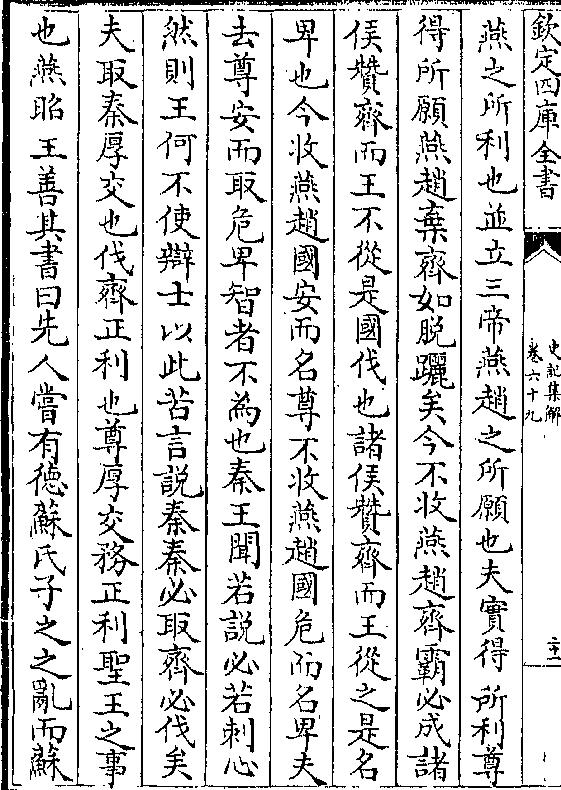 欽定四庫全書
史記集解
卷六十九
二十一
燕之所利也並立三帝燕趙之所願也夫實得所利尊
得所願燕趙棄齊如脫躧矣今不收燕趙齊霸必成諸
侯贊齊而王不從是國伐也諸侯贊齊而王從之是名
卑也今收燕趙國安而名尊不收燕趙國危而名卑夫
去尊安而取危卑智者不為也秦王聞若說必若刺心
然則王何不使辯士以此苦言說秦秦必取齊必伐矣
夫取秦厚交也伐齊正利也尊厚交務正利聖王之事
也燕昭王善其書曰先人嘗有德蘇氏子之之亂而蘇